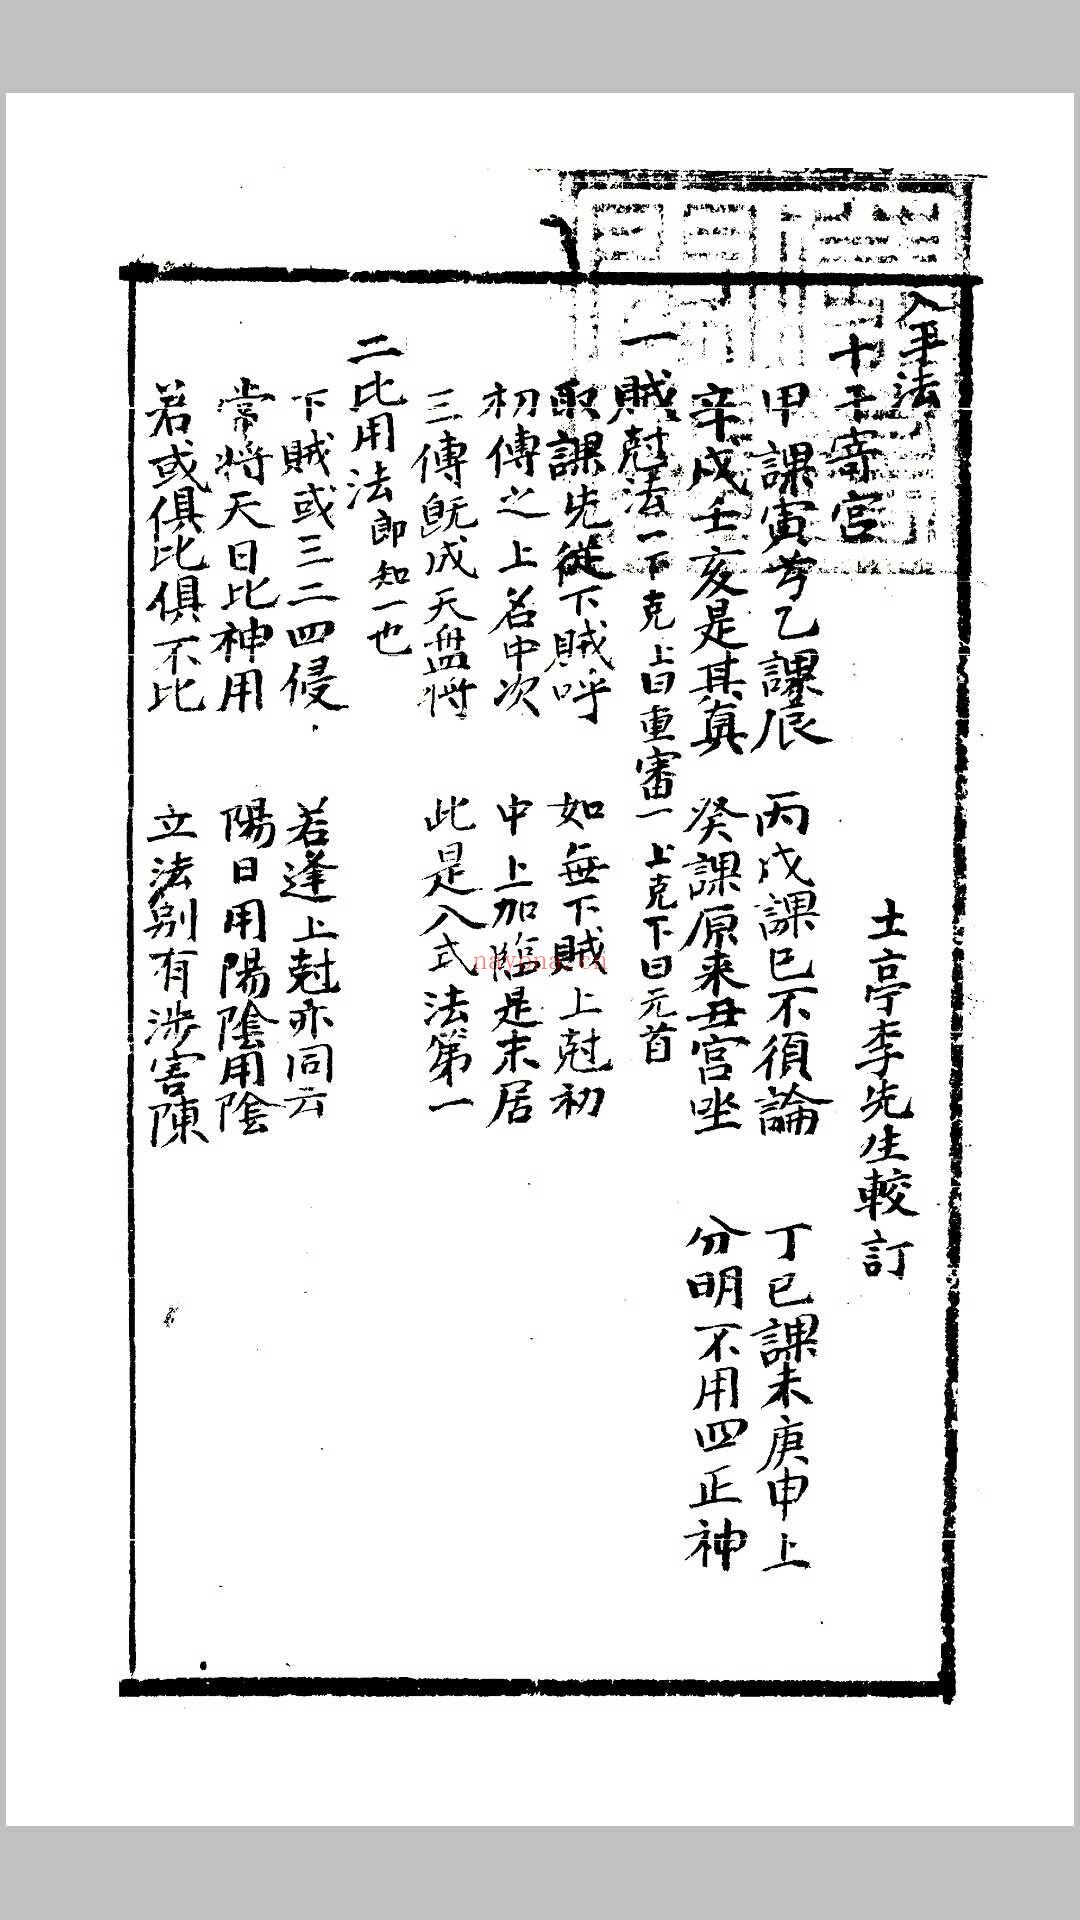 入手法
十干寄宮
土亭李先生較訂
甲課寅兮乙課辰 丙戊課巳不須論 丁巳課未庚申上
辛戌壬亥是其真 癸課原来丑宮坐 分明不用四正神
一賊尅法一下克上曰重審一上克下曰元首
取課先從下賊呼 如無下賊上尅初
初傳之上名中次 中上加臨是末居
三傳既成天盤將 此是入式法第一
二比用法即知一也
下賊或三二四侵 若逢上尅亦同云
常將天日比神用 陽日用陽陰用陰
若或俱比俱不比 立法別有涉害陳
nayona.cn